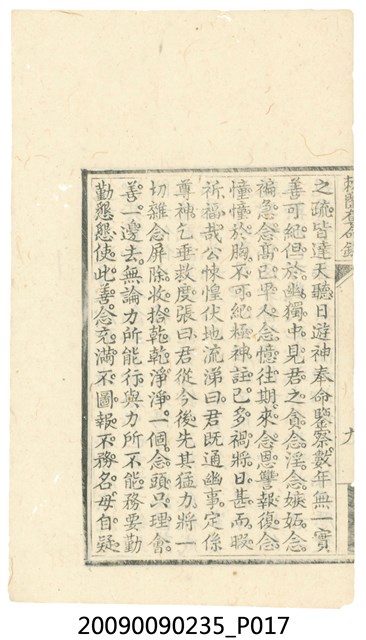 之疏。皆達天聽。日遊神奉命鑒察。數年無一實
善可紀。但於幽獨中。見君之貪念。淫念。嫉妬念。
褊急念。高己卑人念。憶往期來念。恩讐報復念。
憧憧於胸。不可紀極。神註已多。禍將日甚。而暇
祈福哉。公悚惶伏地流涕曰。君既通幽事。定係
尊神。乞垂救度。張曰。君從今後。先具猛力。將一
切雜念屏除。收拾乾乾淨淨。一個念頭。只理會
善一邊去。無論力所能行。與力所不能。務要勤
勤懇懇。使此善念充滿。不圖報。不務名。毋自疑
九
20090090235_P017